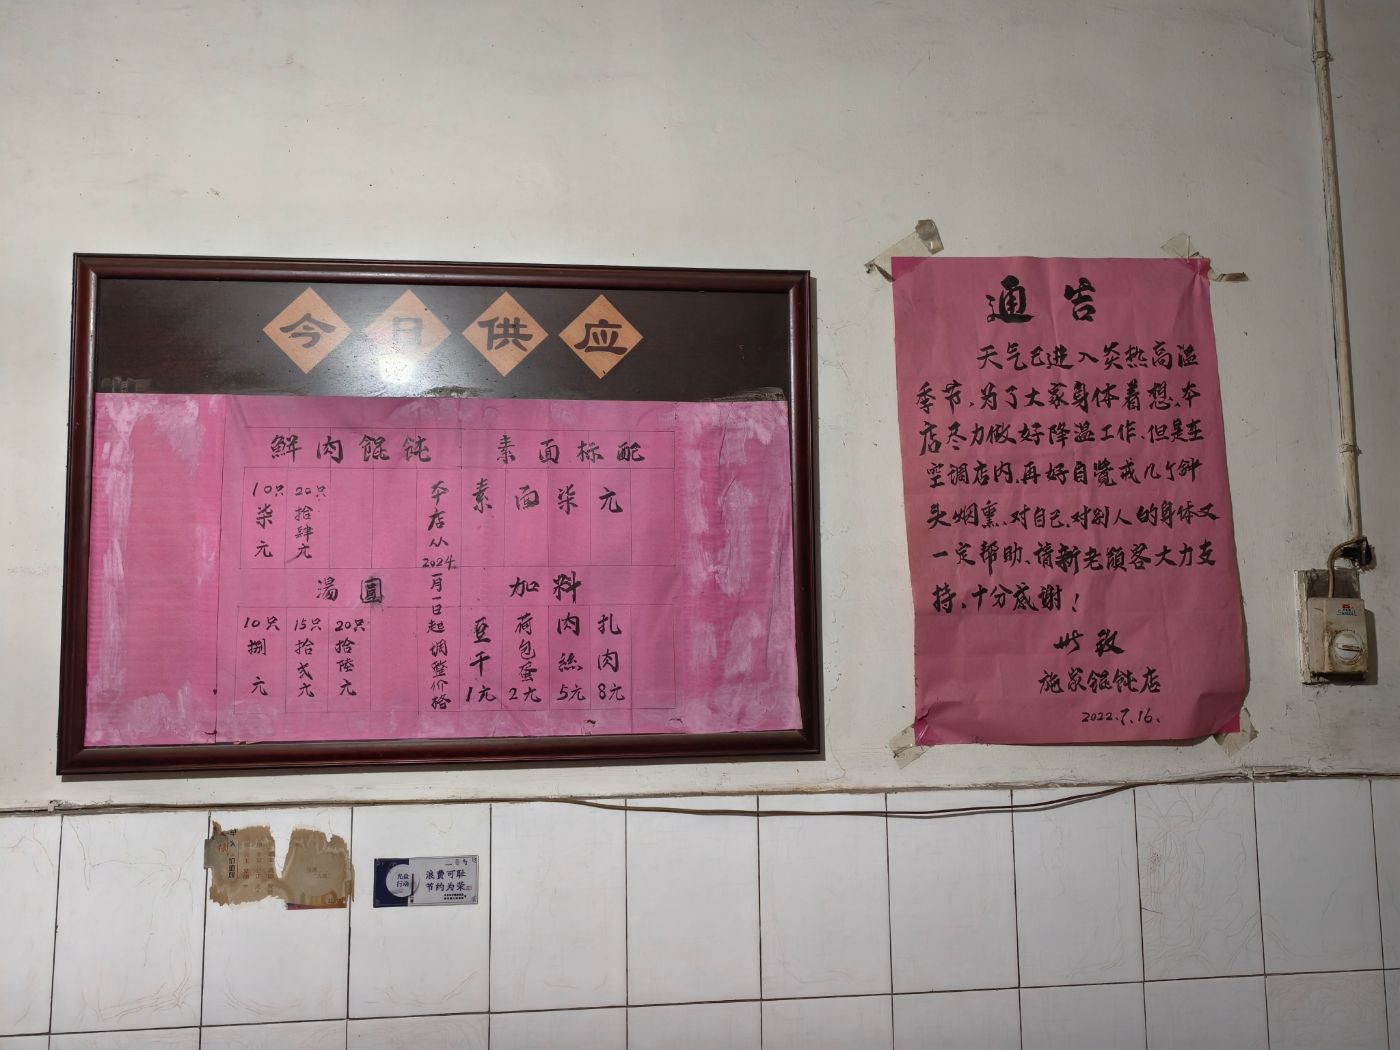 今月供应
鮮肉餛飩
素面标配
10只柒元
20只拾肆元
本店从2024年一月一日起调整价格
素面柒元
湯圓
加料
10只捌元
15只拾弍元
20只拾陸元
豆干1元
荷包蛋2元
肉絲5元
扎肉8元
通告
天气已进入炎热高温
季节、为了大家身体着想、本
店尽力做好降温工作、但是在
空调店内、再好自觉戒几个钟
头烟熏、对自己、对别人的身体又
一定帮助、请新老顾客大力支
持、十分感谢！
此致
施家餛飩店
2022.7.16.
光盘
行动
浪费可耻
节约为荣